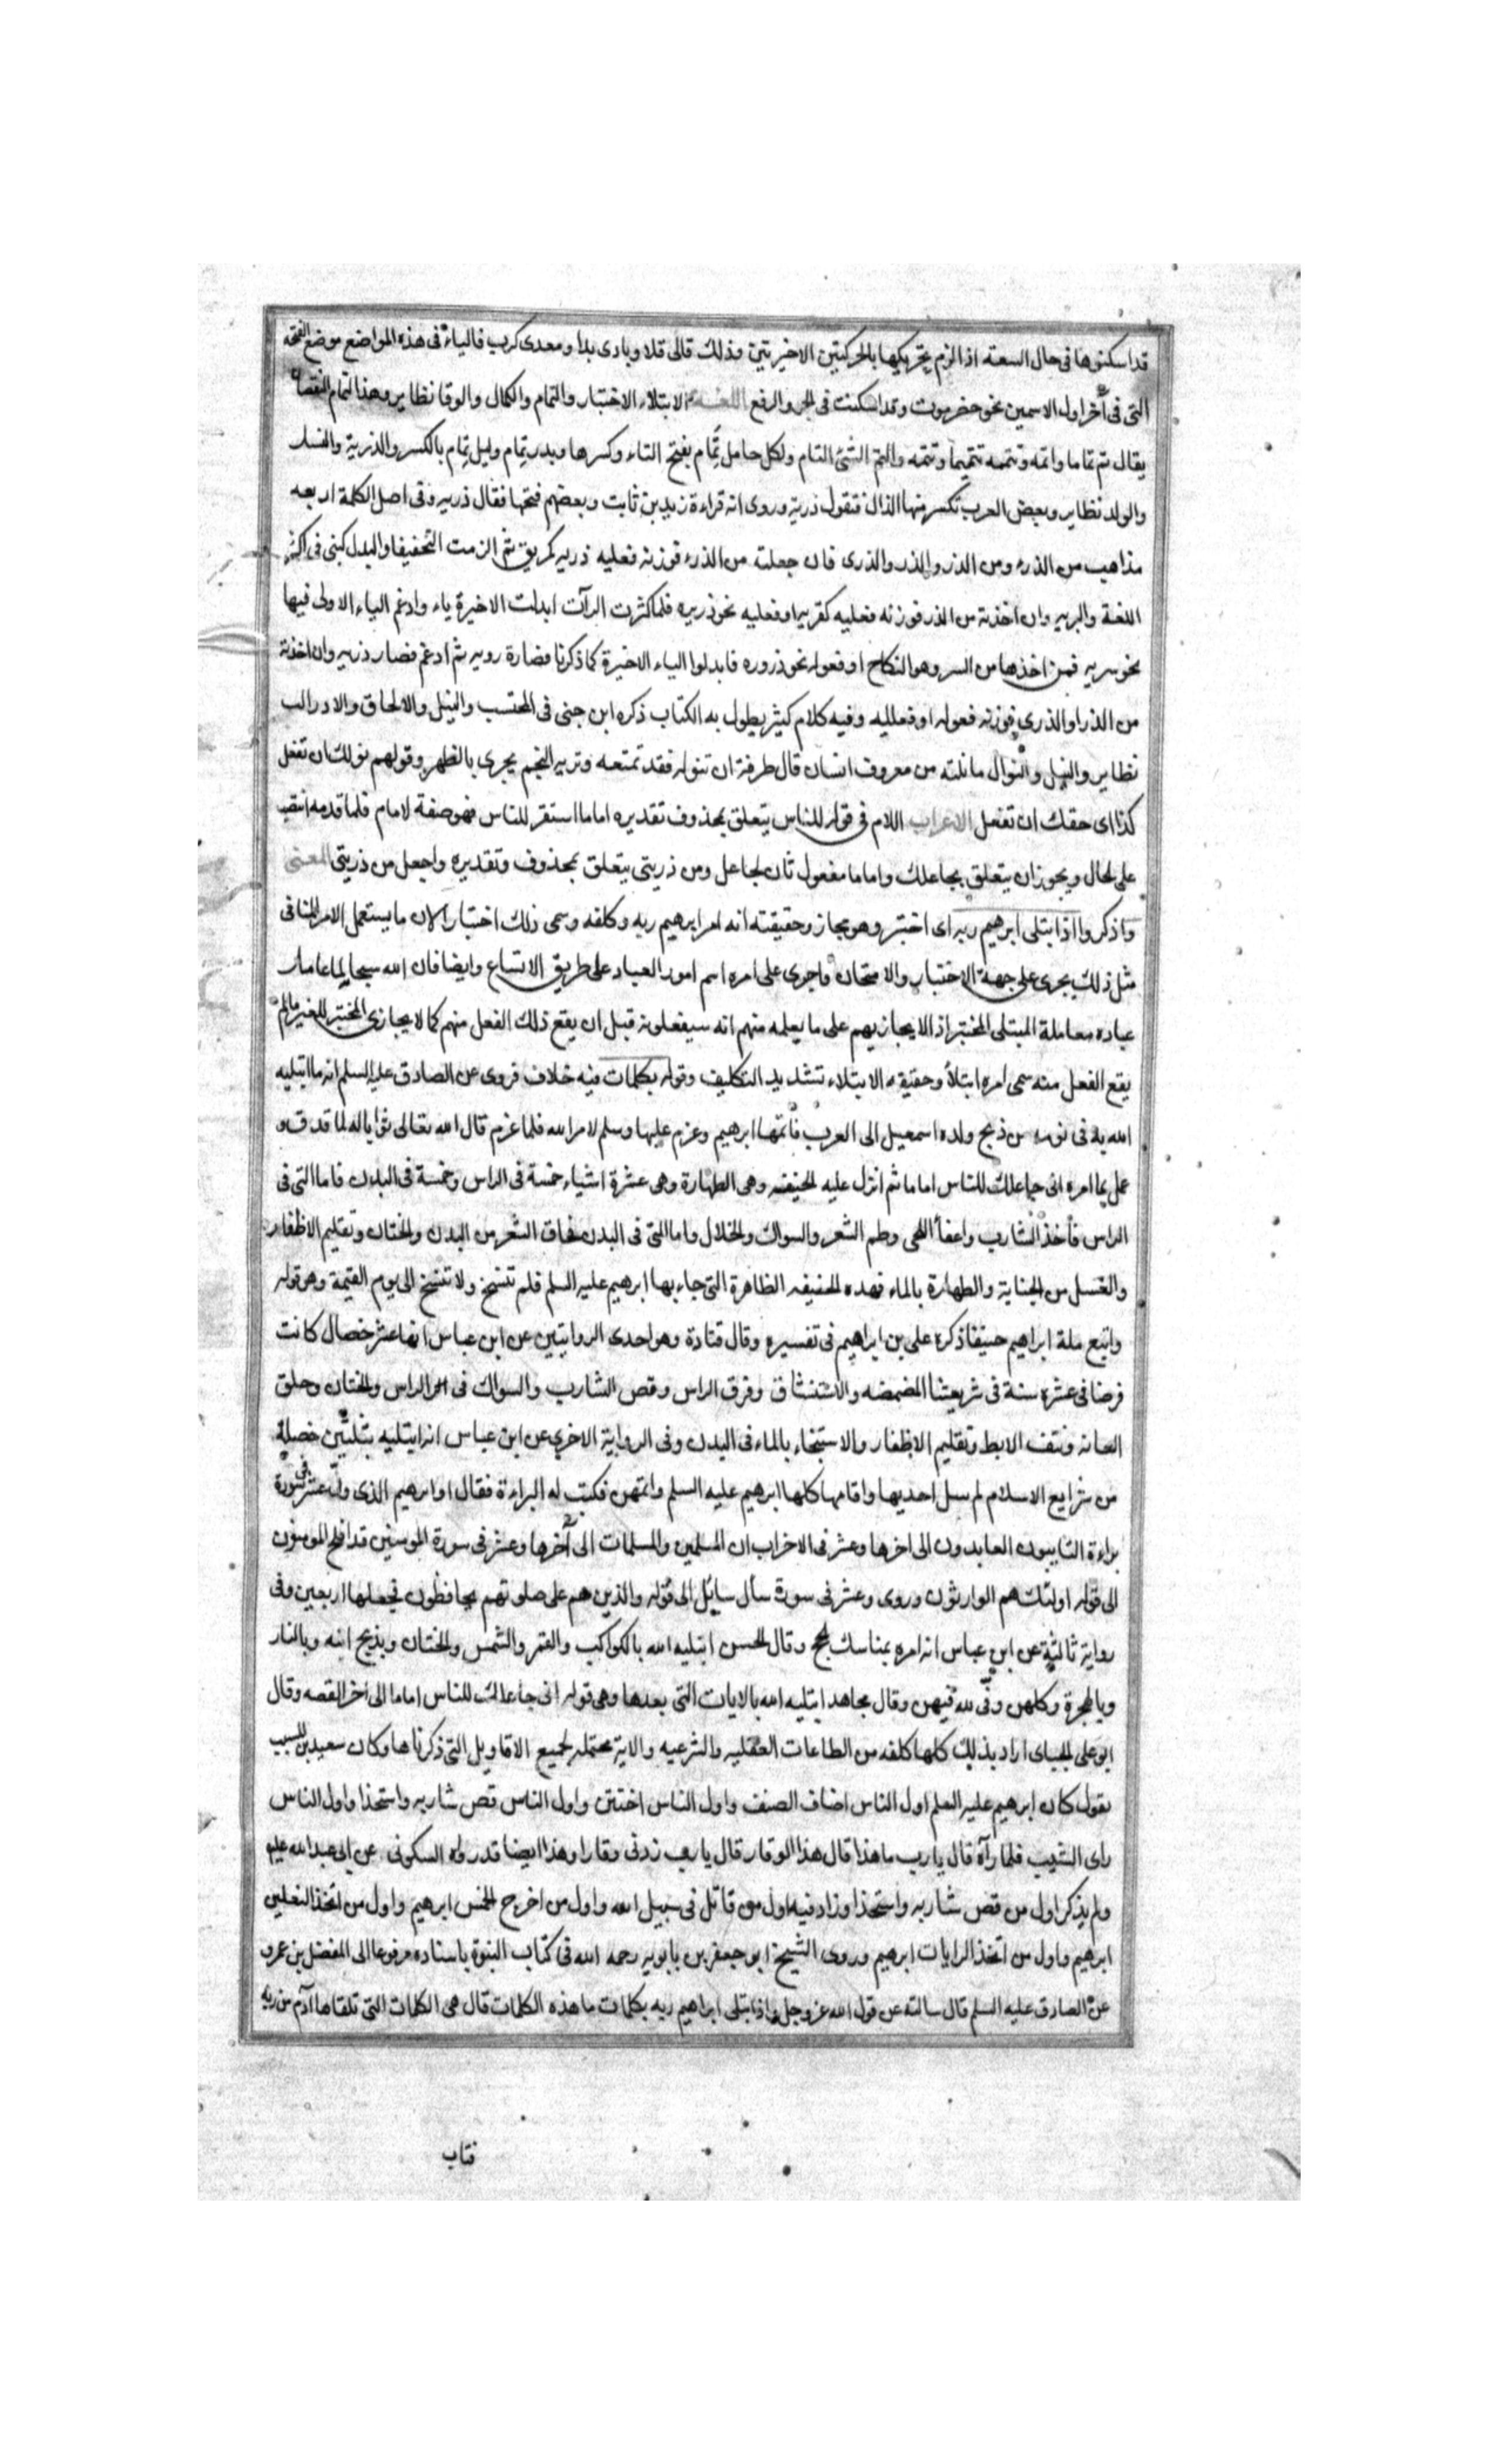 قد اسكنوها فى حال السعة اذا لزم تحريكها بالحركتين الاخيرتين وذلك قالى قلا وبادى بدا ومعدى كرب فالياء فى هذه المواضع موضع الفتحة
التى فى آخر اول الاسمين نحو حضرموت وقد اسكنت فى الجر والرفع اللغة الابتلاء الاختبار والتمام والكمال والوفا نظاير وضد التمام النقصان
يقال تم تماما واتمه وتممه تتميما وتتمه والتم الشئ التام ولكل حامل تمام بفتح التاء وكسرها وبدر تمام وليل تمام بالكسر والذرية والنسل
والولد نظاير وبعض العرب تكسر منها الذال فتقول ذرية وروى انه قراءة زيد بن ثابت وبعضهم فتحها فقال ذريه وفى اصل الكلمة اربعه
مذاهب من الذرء ومن الذر والذرو والذرى فان جعلته من الذرء فوزنه فعليه ذريه كمريق ثم الزمت التخفيف او البدل كنبى فى اكثر
اللغة والبريه وان اخذته من الذر فوزنه فعليه كقمريه او فعليه نحو ذريره فلما كثرت الرآت ابدلت الاخيرة ياء وادغم الياء الاولى فيها
نحو سريه فمن اخذها من السر وهو النكاح او فعوله نحو ذروره فابدلوا الياء الاخيرة كما ذكرنا فصارة رويه ثم ادغم فصار ذريه وان اخذته
من الذر او الذرى فوزنه فعوله او فعليله وفيه كلام كثير يطول به الكتاب ذكره ابن جنى فى المحتسب والنيل والالحاق والادراك
نظاير والنيل والنوال ما نلته من معروف انسان قال طرفة ان تنوله فقد تمنعه وتريه النجم يجرى بالظهر وقولهم نولك ان تفعل
كذا اى حقك ان تفعل الاعراب اللام فى قوله للناس يتعلق بمحذوف تقديره اماما استقر للناس فهو صفة لامام فلما قدمه انتصب
على الحال ويجوز ان يتعلق بجاعلك واماما مفعول ثان لجاعل ومن ذريتى يتعلق بمحذوف وتقديره واجعل من ذريتى المعنى
واذكروا اذ ابتلى ابرهيم ربه اى اختبر وهو مجاز وحقيقته انه امر ابرهيم ربه وكلفه وسمى ذلك اختبارا لان ما يستعمل الامر منا فى
مثل ذلك يجرى على جهة الاختبار والامتحان فاجرى على امره اسم امور العباد على طريق الاتساع وايضا فان الله سبحانه لما عامل
عباده معاملة المبتلى المختبر اذ لا يجازيهم على ما يعلمه منهم انه سيفعلونه قبل ان يقع ذلك الفعل منهم كما لا يجازى المختبر للغير ما لم
يقع الفعل منه سمى امره ابتلأ وحقيقه الابتلاء تشديد التكليف وقوله بكلمات فيه خلاف فروى عن الصادق عليه السلم انه ما ابتليه
الله به فى نومه من ذبح ولده اسمعيل الى العرب فاتمها ابرهيم وعزم عليها وسلم لامر الله فلما عزم قال الله تعالى ثوابا له لما صدق و
عمل بما امره انى جاعلك للناس اماما ثم انزل عليه الحنيفيه وهى الطهارة وهى عشرة اشياء خمسة فى الراس وخمسة فى البدن فاما التى فى
الراس فأخذ الشارب واعفأ اللحى وطم الشعر والسواك والخلال واما التى فى البدن فحلق الشعر من البدن والختان وتقليم الاظفار
والغسل من الجنابة والطهارة بالماء فهذه الحنيفيه الظاهرة التى جاء بها ابرهيم عليه السلم فلم تنسخ ولا تنسخ الى يوم القيمة وهو قوله
واتبع ملة ابراهيم حنيفا ذكره على بن ابراهيم فى تفسيره وقال قتادة وهو احدى الروايتين عن ابن عباس انها عشر خصال كانت
فرضا فى عشره سنة فى شريعتنا المضمضه والاستنشاق وفرق الراس وقص الشارب والسواك فى الراس والختان وحلق
العانه ونتف الابط وتقليم الاظفار والاستنجاء بالماء فى البدن وفى الرواية الاخرى عن ابن عباس انه ابتليه بثلثين خصلة
من شرايع الاسلام لم يبتل احد بها واقامها كلها ابرهيم عليه السلم واتمهن فكتب له البراءة فقال وابرهيم الذى وفى عشر فى سورة
براءة التايبون العابدون الى اخرها وعشر فى الاحزاب ان المسلمين والمسلمات الى آخرها وعشر فى سورة المومنين قد افلح المومنون
الى قوله اولئك هم الوارثون وروى وعشر فى سورة سأل سايل الى قوله والذين هم على صلوتهم يحافظون فجعلها اربعين وفى
رواية ثالثة عن ابن عباس انه امره بمناسك الحج وقال الحسن ابتليه الله بالكواكب والقمر والشمس والختان وبذبح ابنه وبالنار
وبالهجرة وكلهن وفى لله فيهن وقال مجاهد ابتليه الله بالايات التى بعدها وهى قوله انى جاعلك للناس اماما الى اخر القصه وقال
ابو على الجباى اراد بذلك كلها كلفه من الطاعات العقليه والشرعيه والاية محتمله لجميع الاقاويل التى ذكرناها وكان سعيد بن المسيب
يقول كان ابرهيم عليه السلم اول الناس اضاف الضيف واول الناس اختتن واول الناس قص شاربه واستحذا واول الناس
راى الشيب فلما رآه قال يا رب ما هذا قال هذا الوقار قال يا رب زدنى وقارا وهذا ايضا قد رواه السكونى عن ابى عبد الله عليه
ولم يذكر اول من قص شاربه واستحذا وزاد فيه اول من قاتل فى سبيل الله واول من اخرج الخمس ابرهيم واول من اتخذ النعلين
ابرهيم واول من اتخذ الرايات ابرهيم وروى الشيخ ابو جعفر بن بابويه رحمه الله فى كتاب النبوة باسناده مرفوعا الى المفضل بن عمرو
عن الصادق عليه السلم قال سالته عن قول الله عز وجل واذ ابتلى ابراهيم ربه بكلمات ما هذه الكلمات قال هى الكلمات التى تلقاها آدم من ربه
فتاب